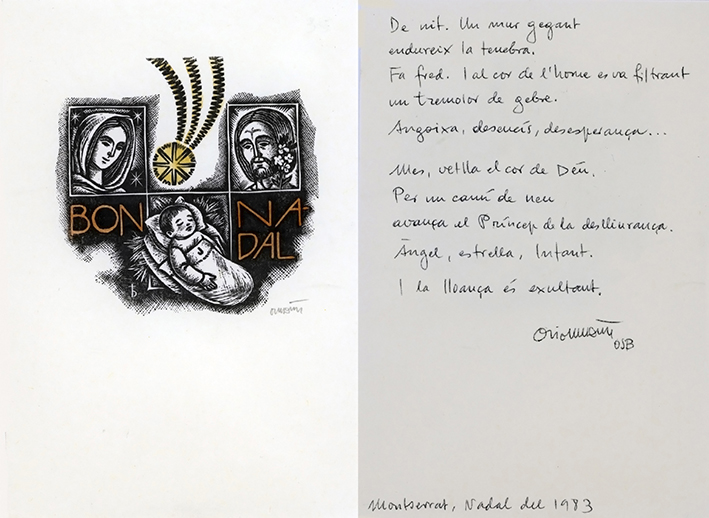 BON NA-
DAL
De nit. Un mur gegant
endureix la tenebra.
Fa fred. I al cor de l'home es va filtrant
un tremolor de gebre.
Angoixa, desencís, desesperança...
Mes, vetlla el cor de Déu.
Per un camí de neu
avança el Príncep de la deslliurança.
Àngel, estrella, Infant.
I la lloança és exultant.
OSB
Montserrat, Nadal del 1983